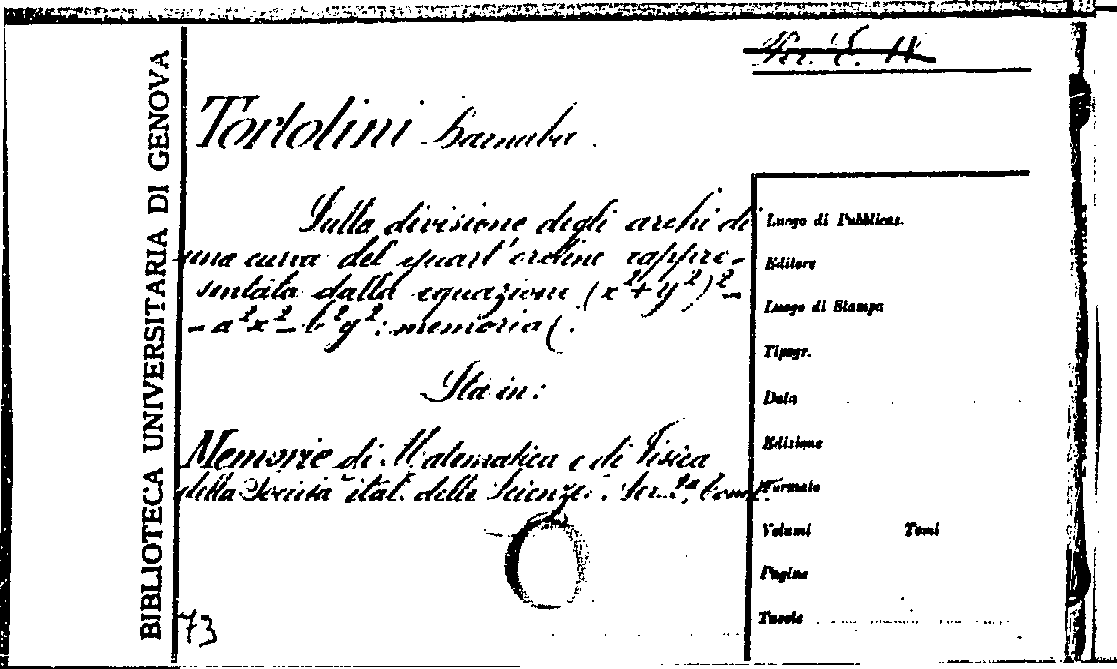 BIBLIOTECA UNIVERSITARIA DI GENOVA
Tortolini Barnaba.
Sulla divisione degli archi di
una curva del quart'ordine rappre-
sentata dalla equazione (x²+y²)²-
-a²x²-b²y²: memoria(.
Sta in:
Memorie di Matematica e di Fisica
della Società ital. delle Scienze. Ser. 2ª, tom.
73
Luogo di Pubblicaz.
Editore
Luogo di Stampa
Tipogr.
Data
Edizione
Formato
Volumi Tomi
Pagine
Tavole